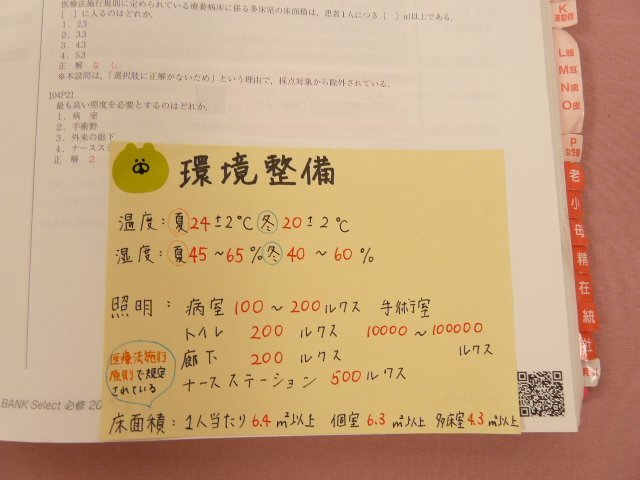 医療法施行規則に定められている療養病床に係る多床室の床面積は，患者1人につき［ ］㎡以上である．
［ ］に入るのはどれか．
1．2.3
2．3.3
3．4.3
4．5.3
正 解 なし
※本設問は，「選択肢に正解がないため」という理由で，採点対象から除外されている．
104P21
最も高い照度を必要とするのはどれか．
1．病 室
2．手術野
3．外来の廊下
4．ナースステ
正 解 2
環境整備
温度：夏24±2℃ 冬20±2℃
湿度：夏45～65% 冬40～60%
照明： 病室 100～200ルクス 手術室
トイレ 200 ルクス 10000～100000
廊下 200 ルクス ルクス
ナースステーション 500ルクス
医療法施行
原則で規定
されている
床面積：1人当たり6.4㎡以上 個室6.3㎡以上 多床室4.3㎡以上
BANK Select 必修 20
K
運動器
L眼
M耳
N歯
O皮
P
女性器
老
小
母
精
在
統
社